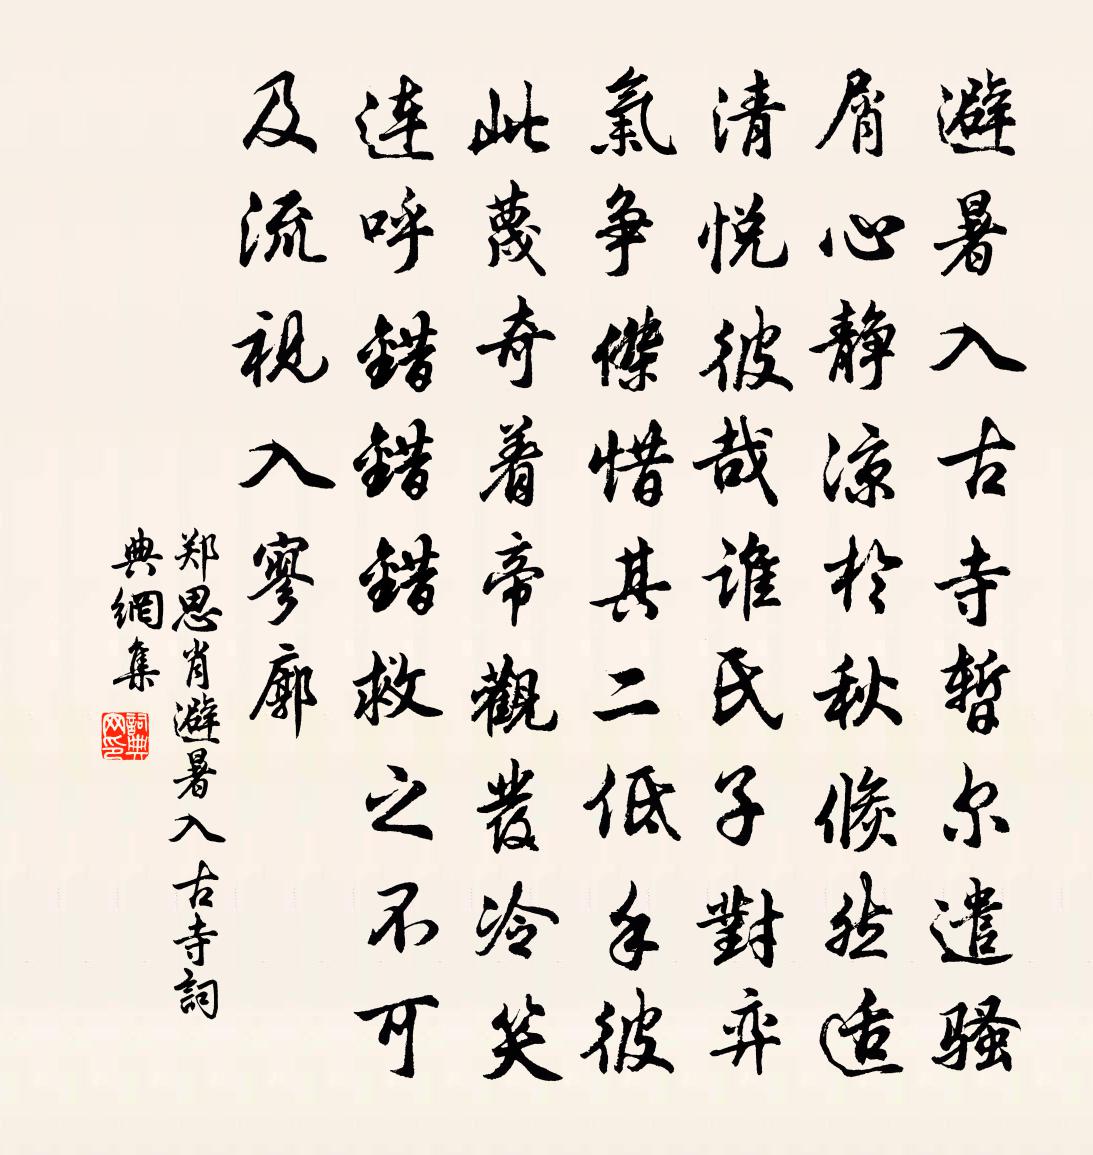 避暑入古寺暫尔遣骚
屑心静涼於秋倏然适
清悦彼哉谁氏子對弈
氣争傑惜其二低手彼
此蔑奇着帝觀發冷笑
连呼錯錯錯救之不可
及流視入寥廓
郑思肖避暑入古寺詞
典網集
詞典
网印